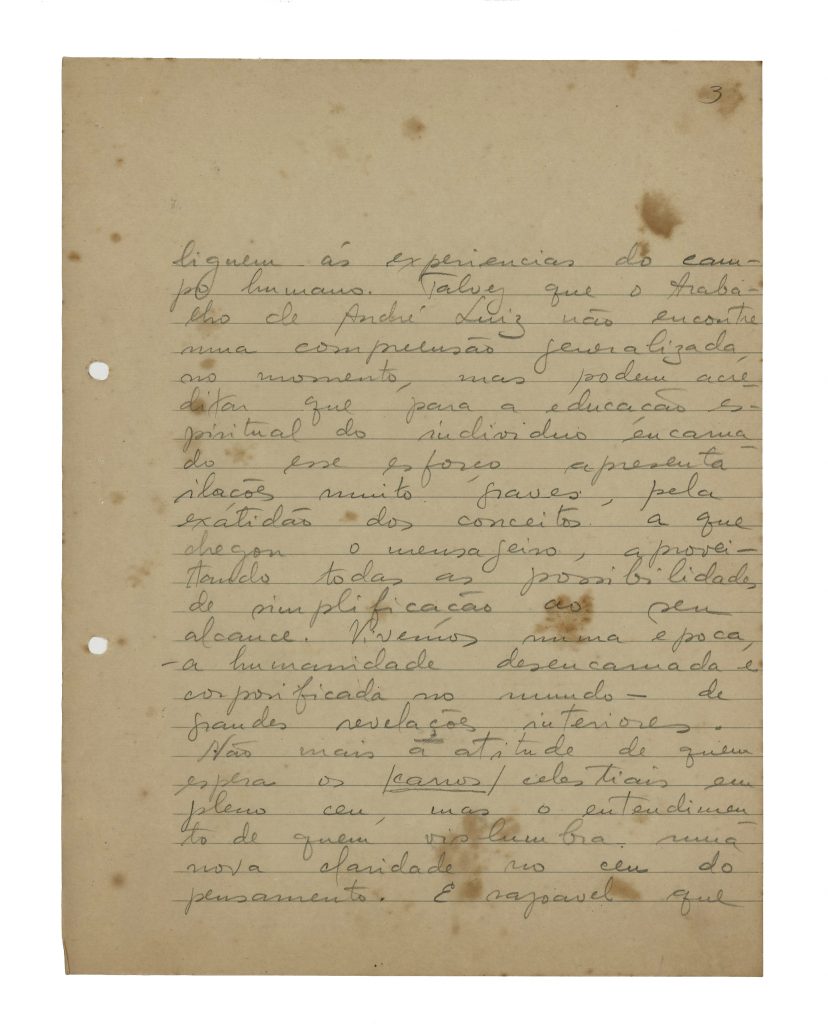 3
liguem ás experiencias do cam-
po humano. Talvez que o traba-
lho de André Luiz não encontre
uma compreensão generalizada,
no momento, mas podem acre
ditar que para a educação es-
piritual do individuo encarna
do esse esforço apresenta
ilações muito graves, pela
exatidão dos conceitos a que
chegou o mensageiro, aprovei-
tando todas as possibilidades
de simplificação ao seu
alcance. Vivemos numa epoca,
- a humanidade desencarnada e
corporificada no mundo - de
grandes revelações interiores.
Não mais a atitude de quem
espera os /carros/ celestiais em
pleno ceu, mas o entendimen
to de quem vislumbra uma
nova claridade no ceu do
pensamento. E razoavel que